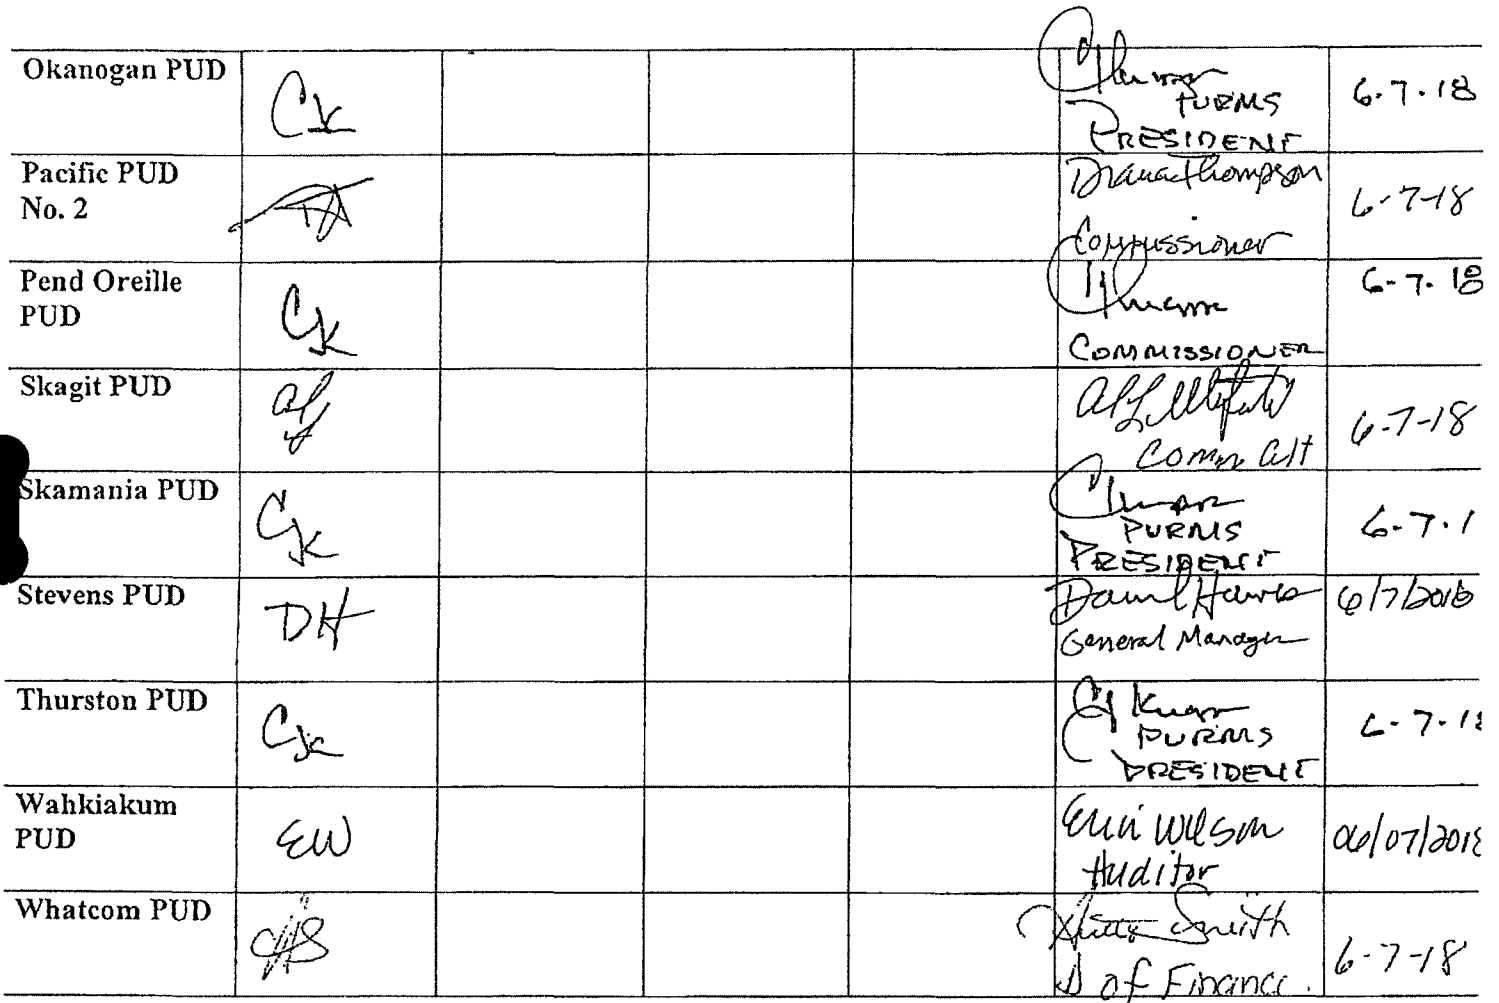 Okanogan PUD
CK
PURMS
PRESIDENT
6-7-18
Pacific PUD
No. 2
Diana Thompson
Commissioner
6-7-18
Pend Oreille
PUD
CK
COMMISSIONER
6-7-18
Skagit PUD
Comm Alt
6-7-18
Skamania PUD
CK
PURMS
PRESIDENT
6-7-1
Stevens PUD
DH
General Manager
6/7/2018
Thurston PUD
CK
PURMS
PRESIDENT
6-7-18
Wahkiakum
PUD
EW
Erin Wilson
Auditor
06/07/2018
Whatcom PUD
AS
Smith
D of Finance.
6-7-18